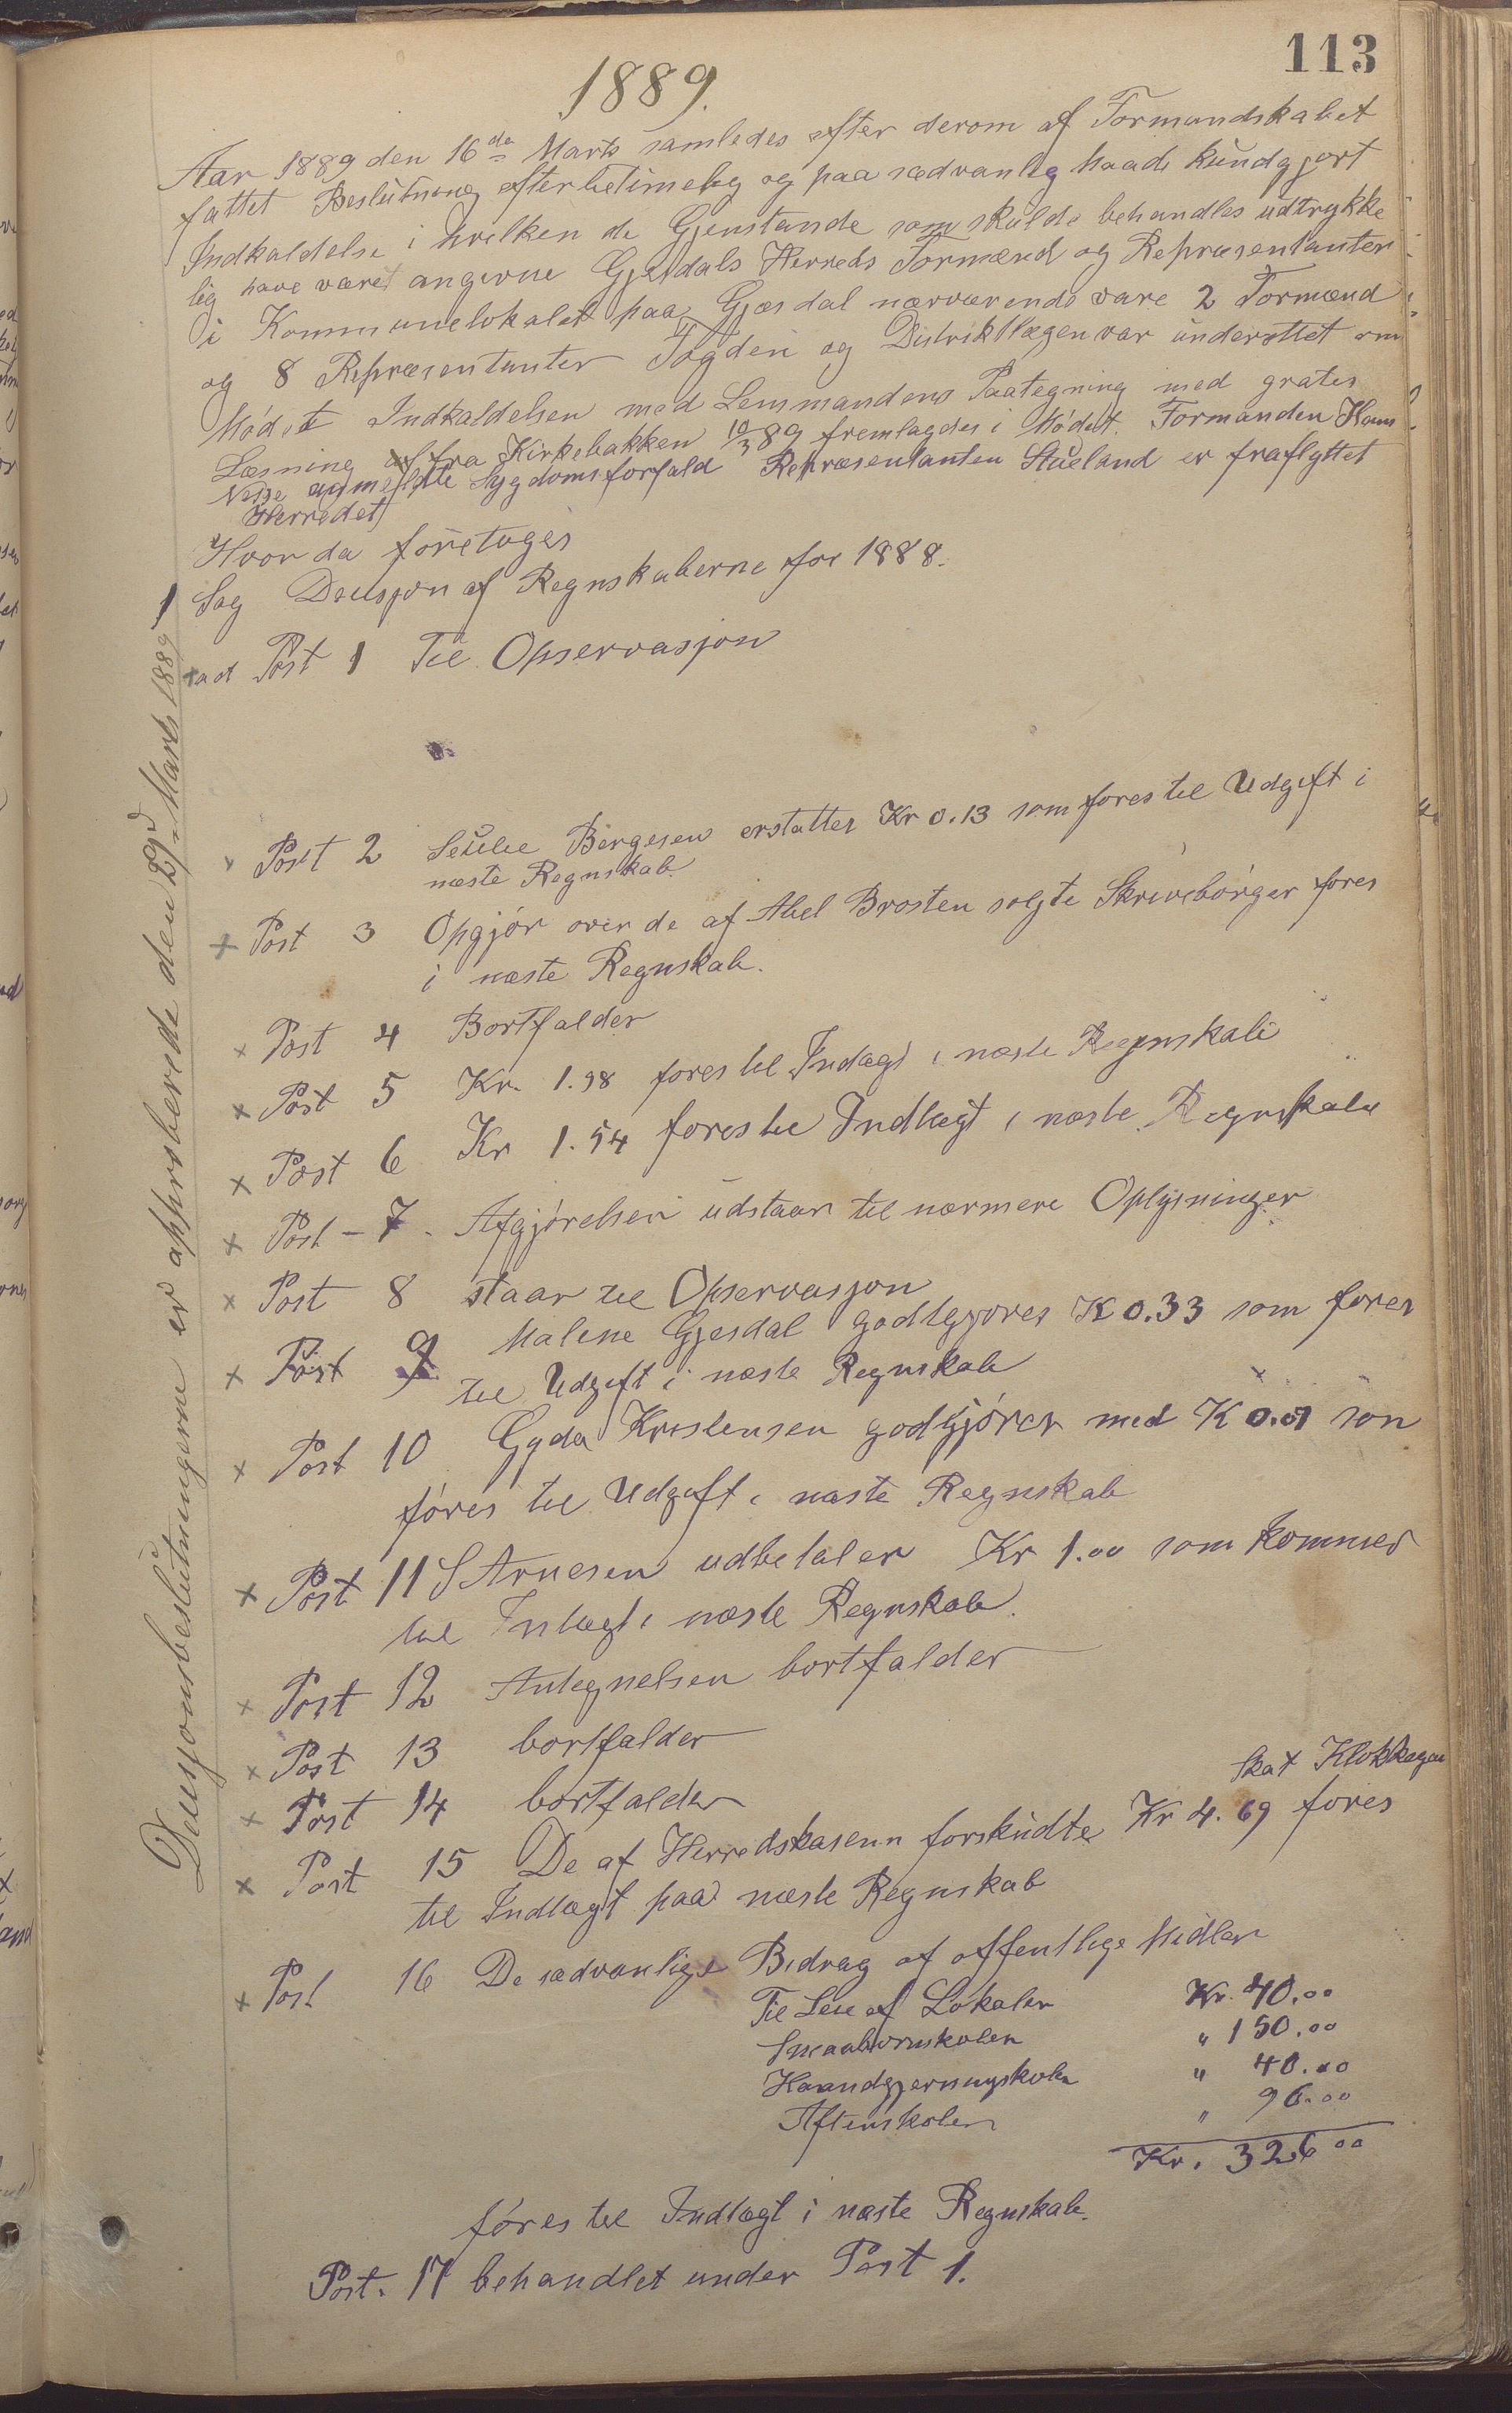 113
1889.
Aar 1889 den 16de Marts samledes efter derom af Formandskabet
fattet Beslutning efter betimelig og paa sædvanlig Maade kundgjort
Indkaldelse i hvilken de Gjenstande som skulde behandles udtrykke
lig have været angivne Gjesdals Herreds Formænd og Repræsentanter
i Kommunelokalet paa Gjesdal nærværende vare 2 Formænd
og 8 Repræsentanter Fogden og Distriktlægen var underettet om
Mødet Indkaldelsen med Lensmandens Paategning med grates
Læsning fra Kirkebakken 10/3 89 fremlagdes i Mødet. Formanden Hans
Nesse anmeldte Sygdomsforfald Repræsentanten Stueland er fraflyttet
Herredet
Hvor da foretoges
1 Sag Desisjon af Regnskaberne for 1888.
ad Post 1 Til Opservasjon
Post 2 Bergesen erstattes Kr 0.13 som føres til Udgift i
næste Regnskab.
Post 3 Opgjør over de af Abel Brosten solgte Skrivebøger føres
i næste Regnskab.
Post 4 Bortfalder
Post 5 Kr. 1.98 føres til Indtægt i næste Regnskab
Post 6 Kr 1.54 føres til Indtægt i næste Regnskab
Post - 7. Afgjørelsen udstaar til nærmere Oplysninger
Post 8 staar til Opservasjon
Post 9 Malene Gjesdal godtgjøres K 0.33 som føres
til Udgift i næste Regnskab
Post 10 Gyda Kristensen godtgjøres med K 0.01 som
føres til Udgift i næste Regnskab
Post 11 S Arnesen udbetaler Kr 1.00 som kommer
til Indtægt i næste Regnskab.
Post 12 Antegnelsen bortfalder
Post 13 bortfalder
Post 14 bortfalder
Skat Klokkegaard
Post 15 De af Herredskassen forskudte Kr 4.69 føres
til Indtægt paa næste Regnskab
Post 16 De sædvanlige Bidrag af offentlige Midler
Til Leie af Lokaler Kr. 40.00
Smaabørnskolen " 150.00
Haandgjerningskole " 40.00
Aftenskolen " 96.00
Kr. 326 00
føres til Indtægt i næste Regnskab.
Post. 17 behandlet under Post 1.
Desisjonsbeslutningerne er apprsberede den 29d Marts 1889